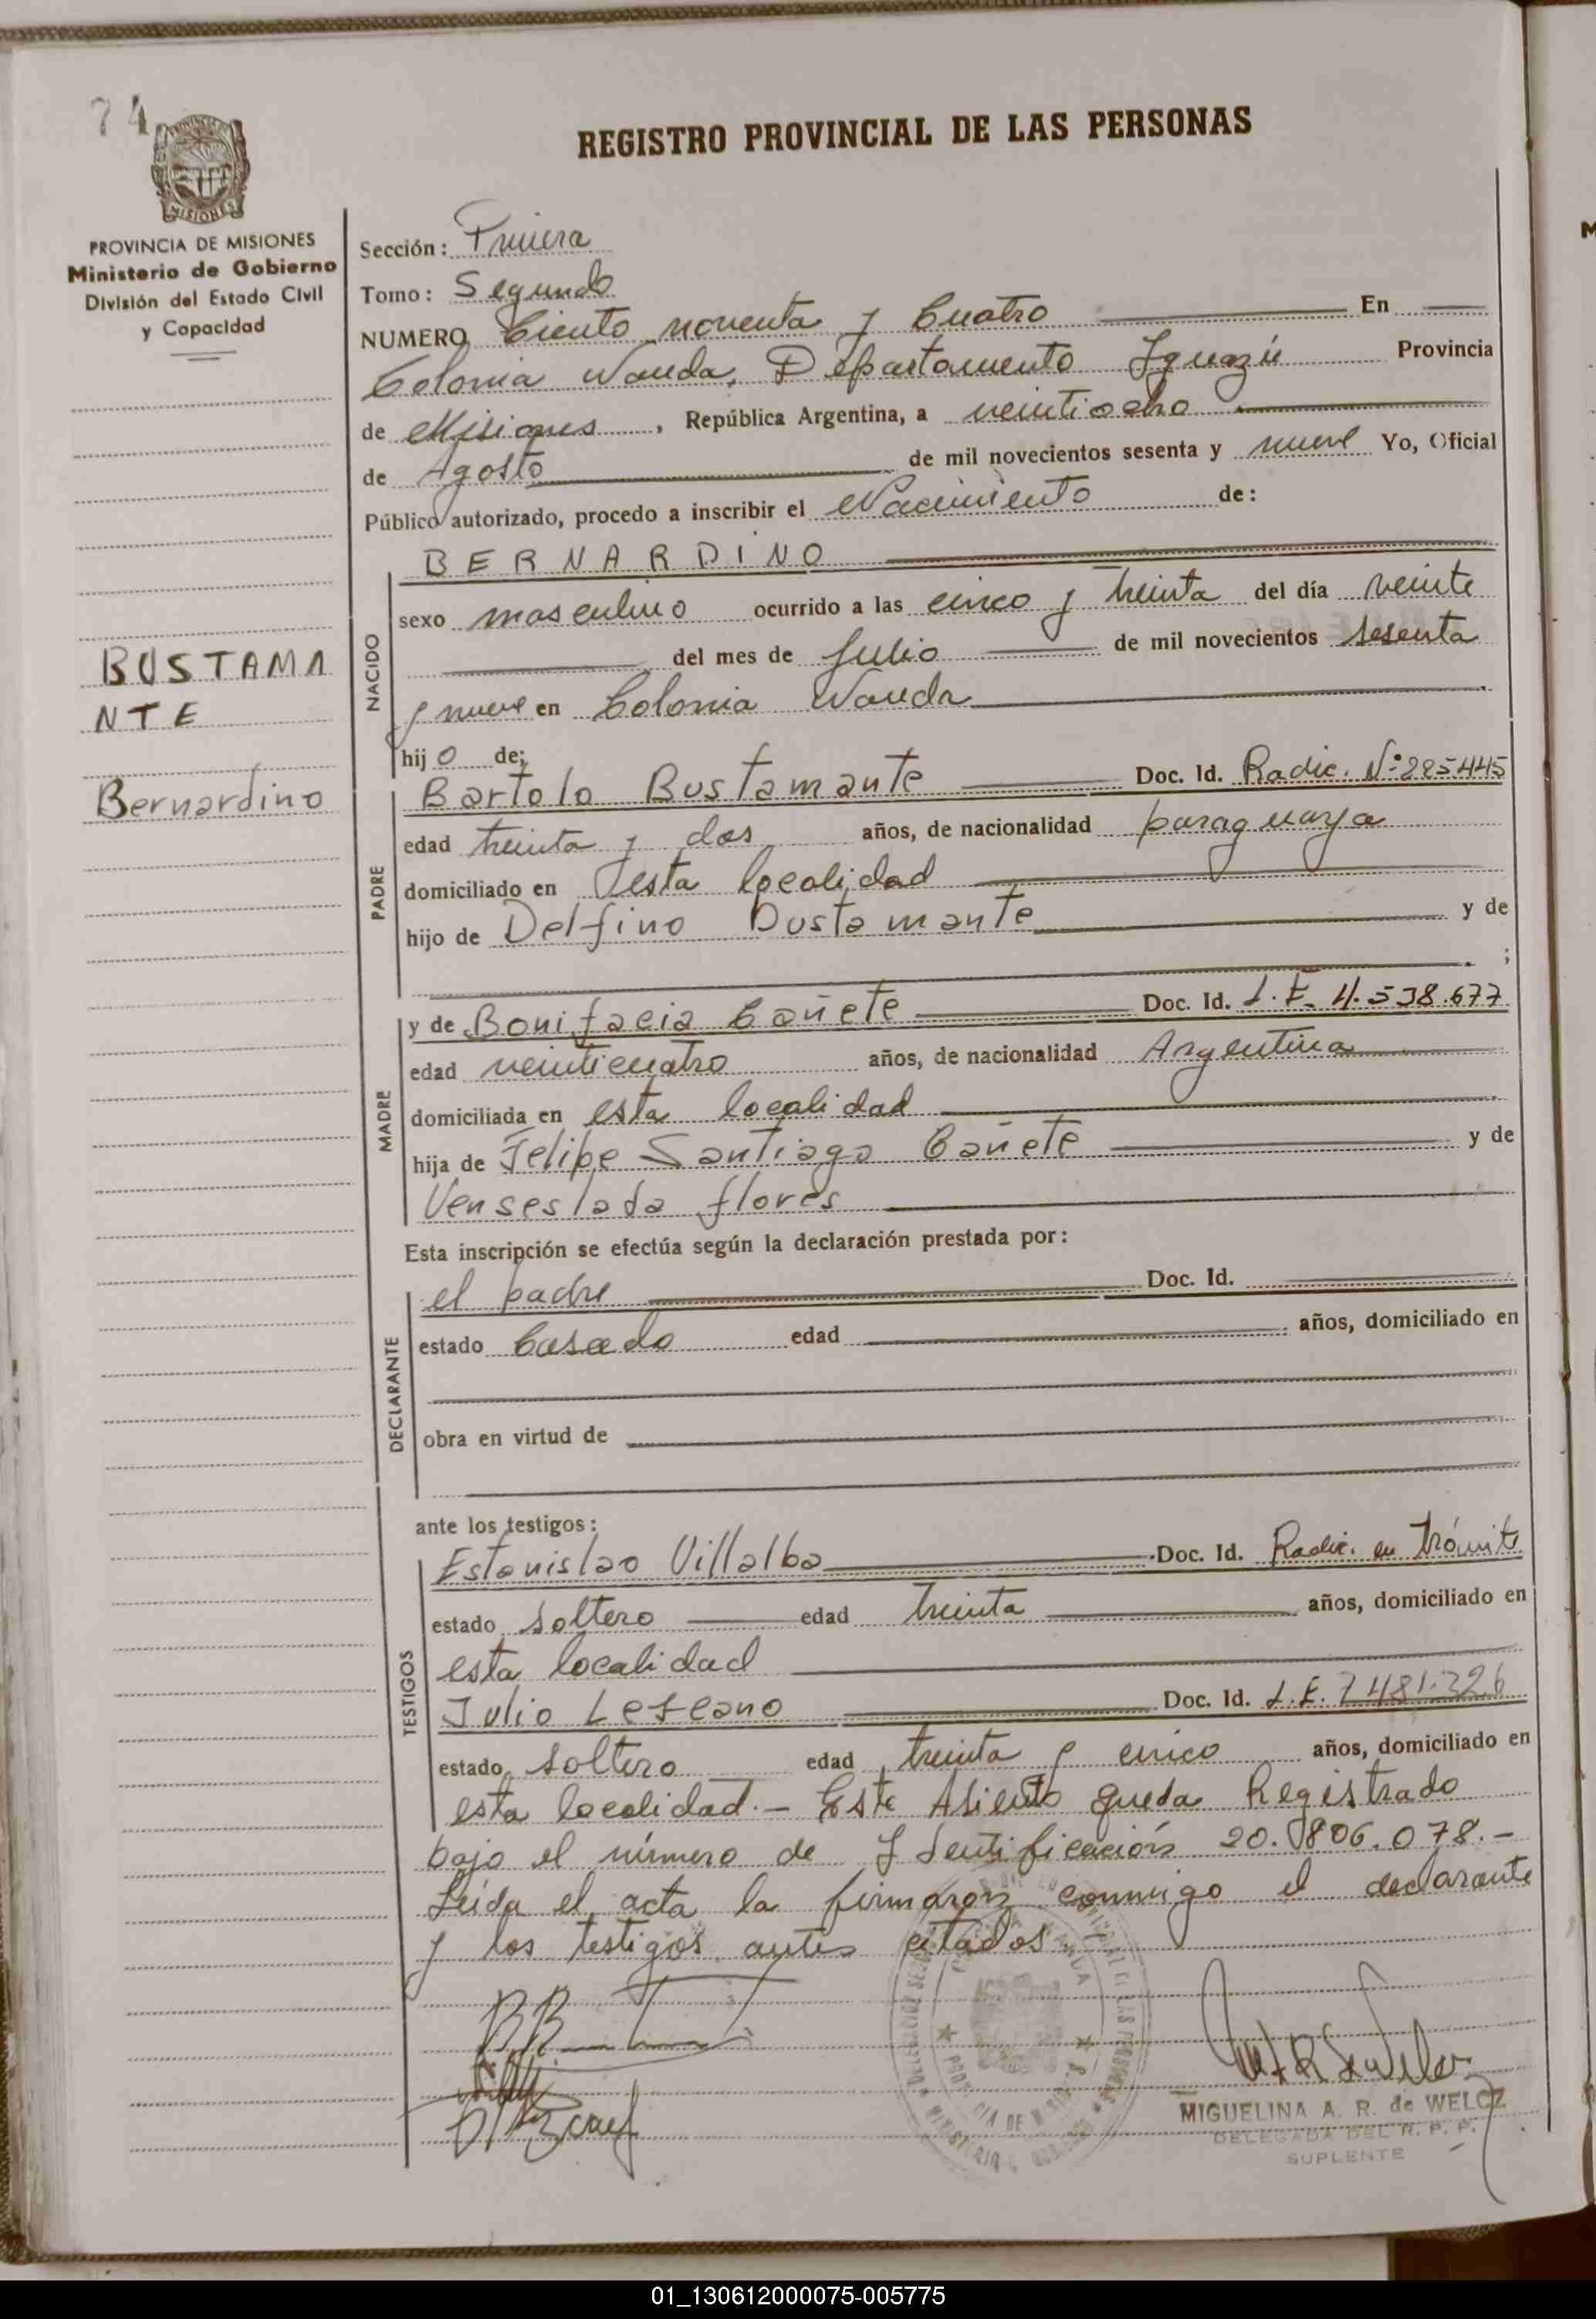 74
REGISTRO PROVINCIAL DE LAS PERSONAS
PROVINCIA DE MISIONES
MISIONES
PROVINCIA DE MISIONES
Ministerio de Gobierno
División del Estado Civil
y Capacidad
Sección: Primera
Tomo: Segundo
NUMERO Ciento noventa y Cuatro En
Colonia Wanda, Departamento Iguazú Provincia
de Misiones, República Argentina, a veintiocho
de Agosto de mil novecientos sesenta y nueve Yo, Oficial
Público autorizado, procedo a inscribir el Nacimiento de:
BUSTAMA
NTE
Bernardino
NACIDO
BERNARDINO
sexo masculino ocurrido a las cinco y treinta del día veinte
del mes de Julio de mil novecientos sesenta
y nueve en Colonia Wanda
hijo de;
PADRE
Bartolo Bustamante Doc. Id. Radic. Nº 225445
edad treinta y dos años, de nacionalidad paraguaya
domiciliado en esta localidad
hijo de Delfino Bustamante y de
;
MADRE
y de Bonifacia Cañete Doc. Id. L.E. 4.538.677
edad veinticuatro años, de nacionalidad Argentina
domiciliada en esta localidad
hija de Felipe Santiago Cañete y de
Venseslada flores
Esta inscripción se efectúa según la declaración prestada por:
DECLARANTE
el padre Doc. Id.
estado Casado edad años, domiciliado en
obra en virtud de
ante los testigos:
TESTIGOS
Estanislao Villalba Doc. Id. Radic. en trámite
estado soltero edad treinta años, domiciliado en
esta localidad
Julio Lescano Doc. Id. L.E. 7481.326
estado soltero edad treinta y cinco años, domiciliado en
esta localidad.- Este Asiento queda Registrado
bajo el número de Identificación 20.806.078.-
Leída el acta la firmaron conmigo el declarante
y los testigos antes citados.
MIGUELINA A. R. de WELCZ
DELEGADA DEL R. P. P.
SUPLENTE
01_130612000075-005775